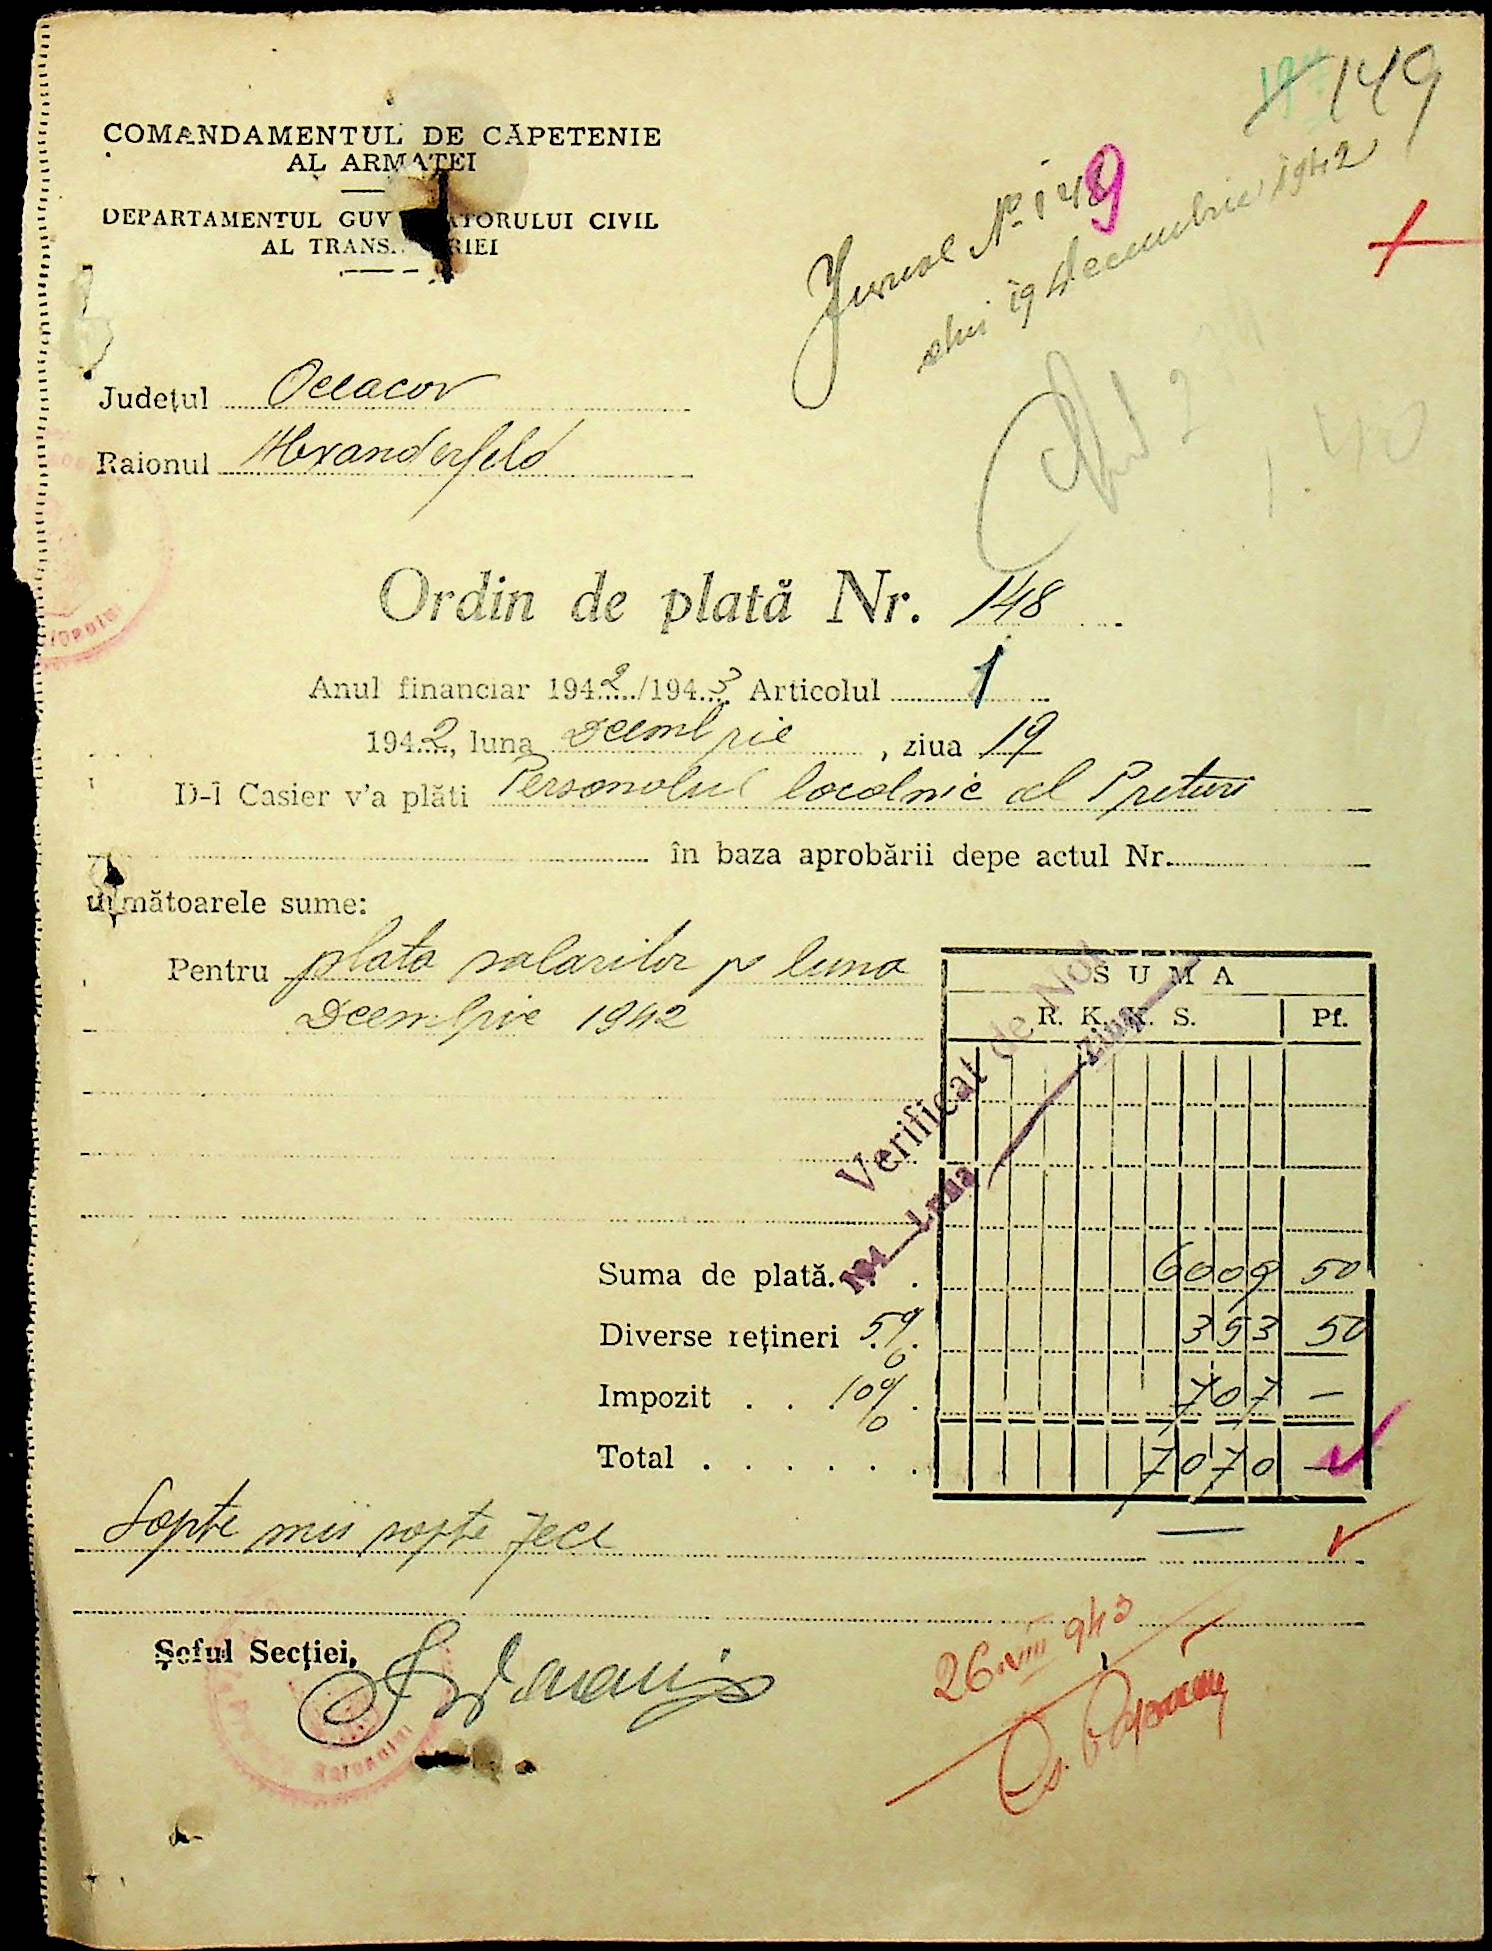 149
COMANDAMENTUL DE CĂPETENIE
AL ARMATEI
DEPARTAMENTUL GUV ATORULUI CIVIL
AL TRANS RIEI
Jurnal No 149
din 19 Decembrie 1942
Județul Oceacov
Raionul Alexanderfeld
Ordin de plată Nr. 148
Anul financiar 1942/1943 Articolul 1
1942, luna Decembrie, ziua 19
D-l Casier v'a plăti Personolul localnic al Preturi
în baza aprobării depe actul Nr.
următoarele sume:
Pentru plata salarilor pe luna
Decembrie 1942
SUMA
R. K. K. S. Pf.
Verificat de Noi
194 Luna Ziua
Suma de plată. . . 6009 50
Diverse rețineri 5% 353 50
Impozit . . . 10% . 707 —
Total . . . . . . 7070 —
Șapte mii șapte zeci
Șeful Secției,
26 VIII 943